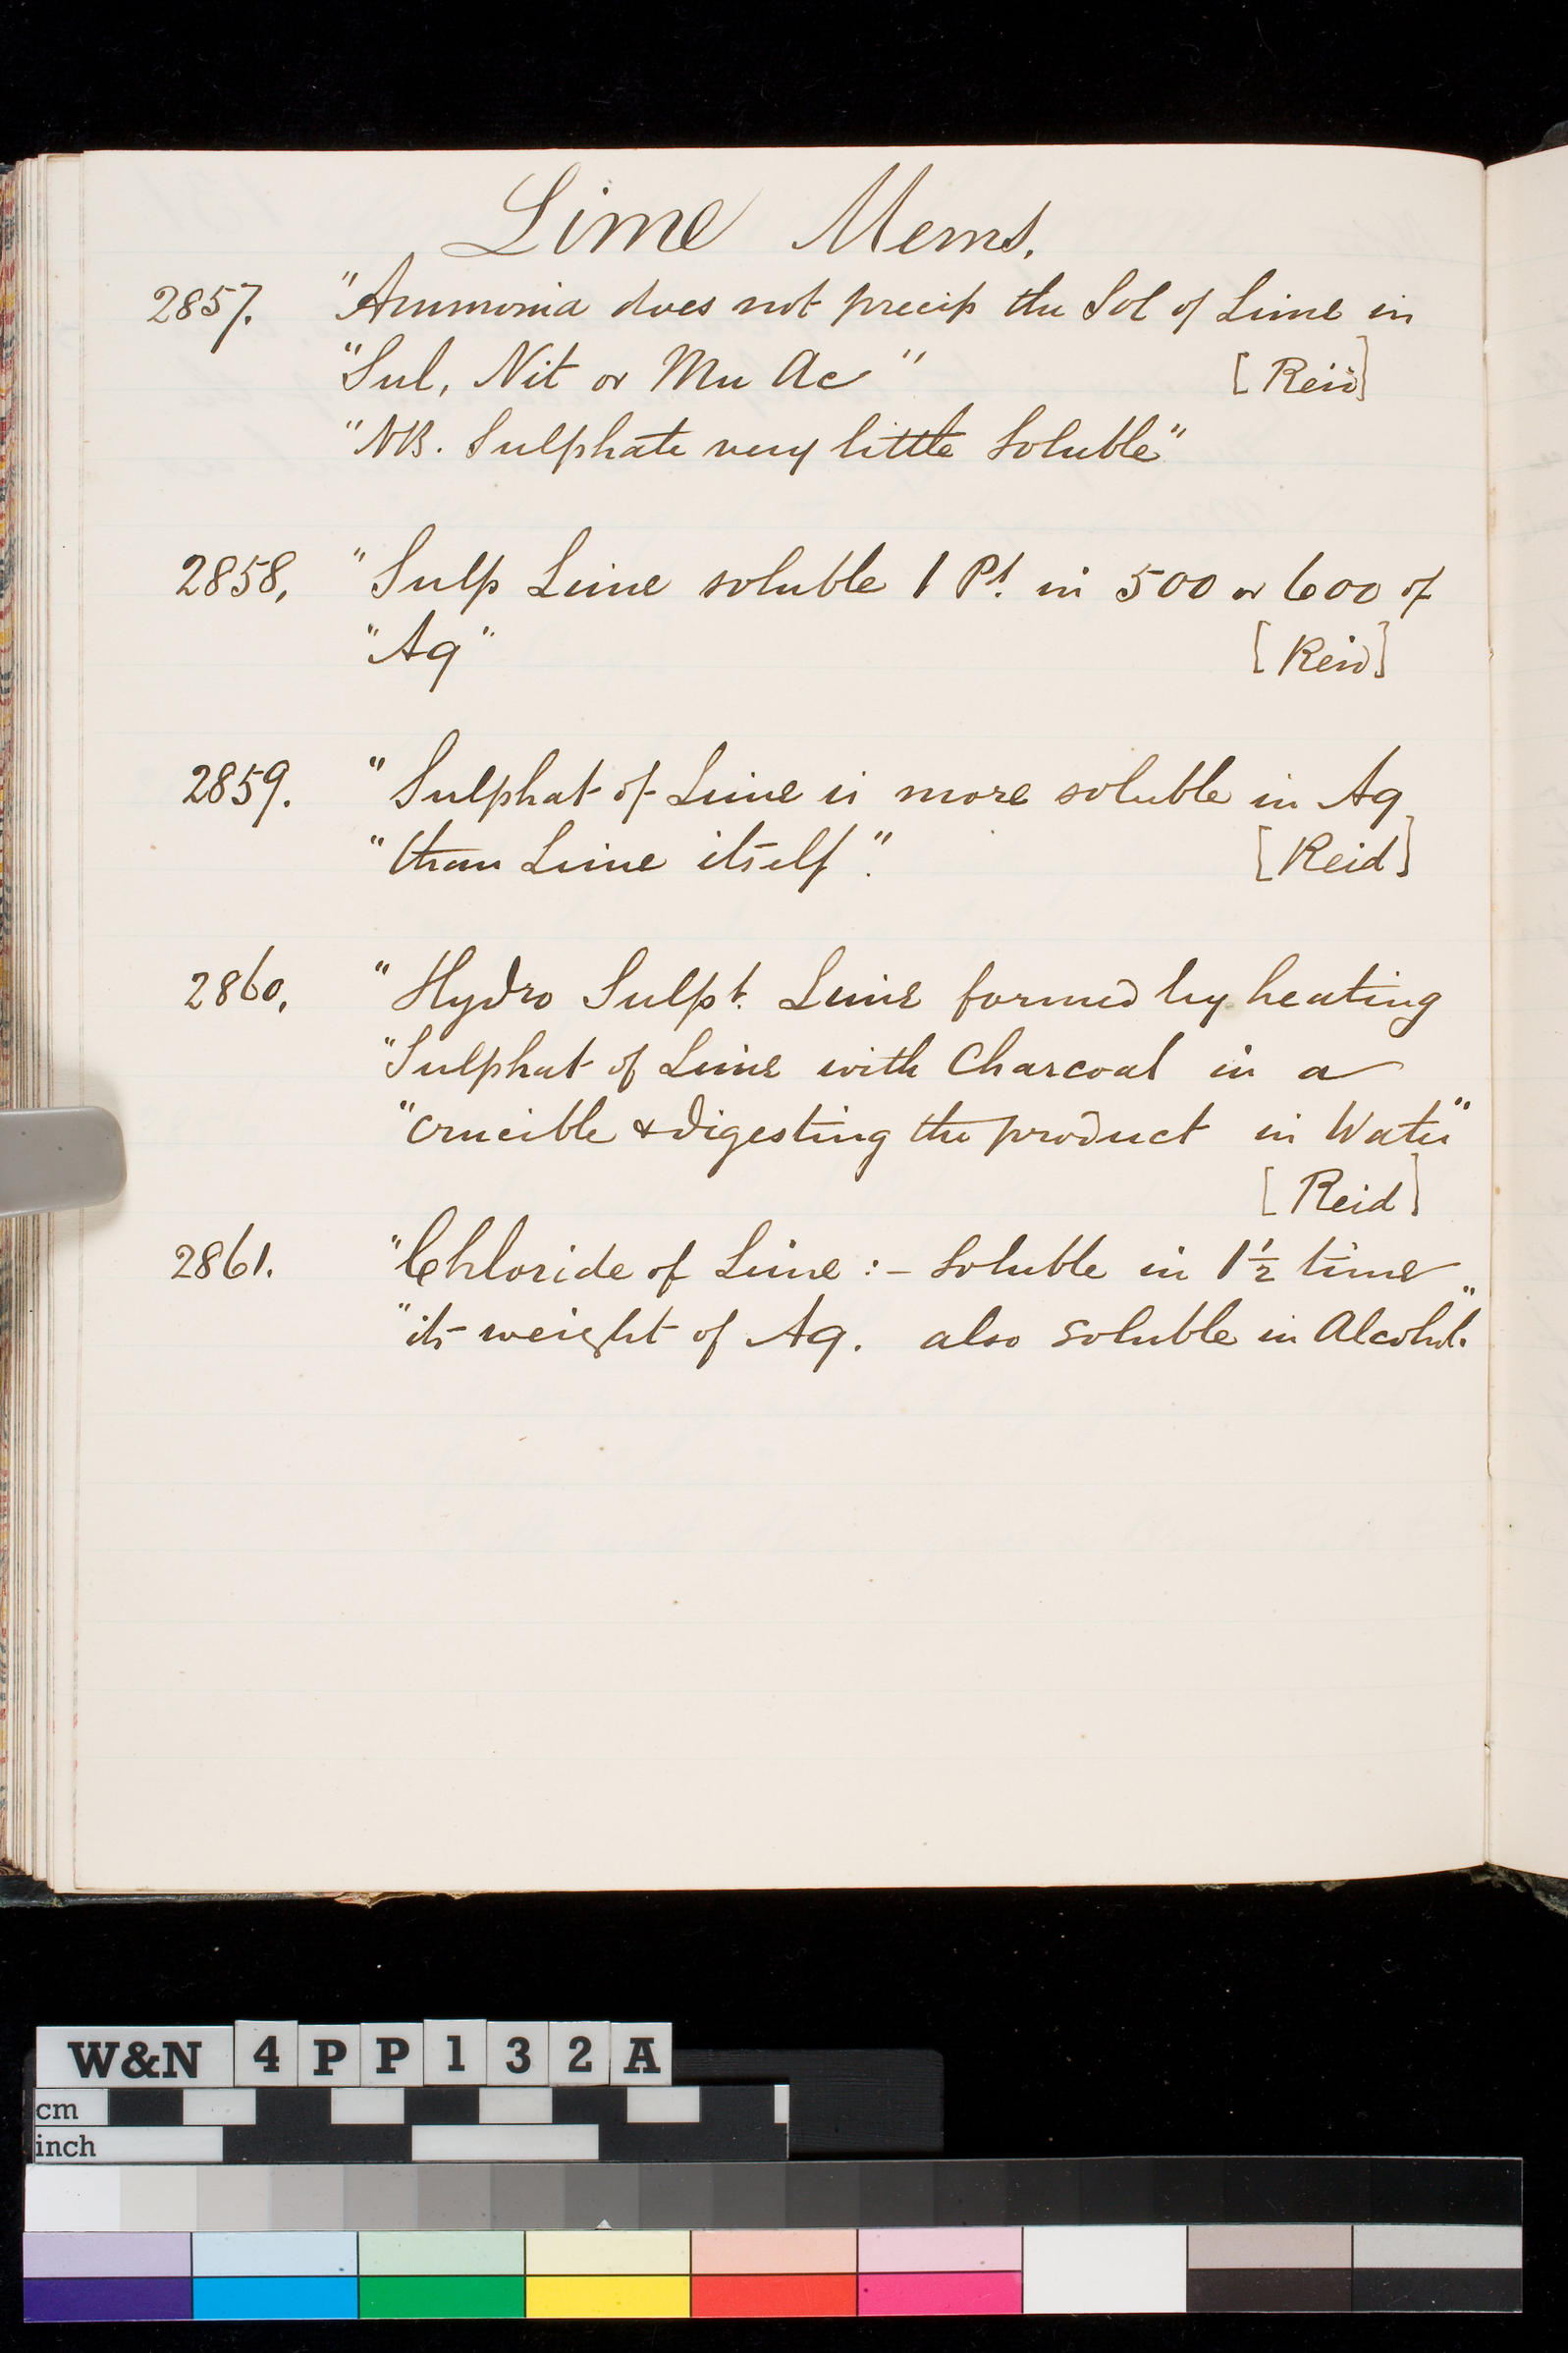 Lime Mems.
2857. "Ammonia does not precip the Sol of Lime in
"Sul, Nit or Mu Ac" [Reid]
"NB. Sulphate very little Soluble"
2858, "Sulp Lime soluble 1 Pt. in 500 or 600 of
"Aq" [Reid]
2859. "Sulphat of Lime is more soluble in Aq
"than Lime itself". [Reid]
2860, "Hydro Sulpt. Lime formed by heating
"Sulphat of Lime with Charcoal in a
"crucible & digesting the product in Water"
[Reid]
2861. "Chloride of Lime :- Soluble in 1½ time
"its weight of Aq. also soluble in Alcohol."
W&N 4PP132A
cm
inch